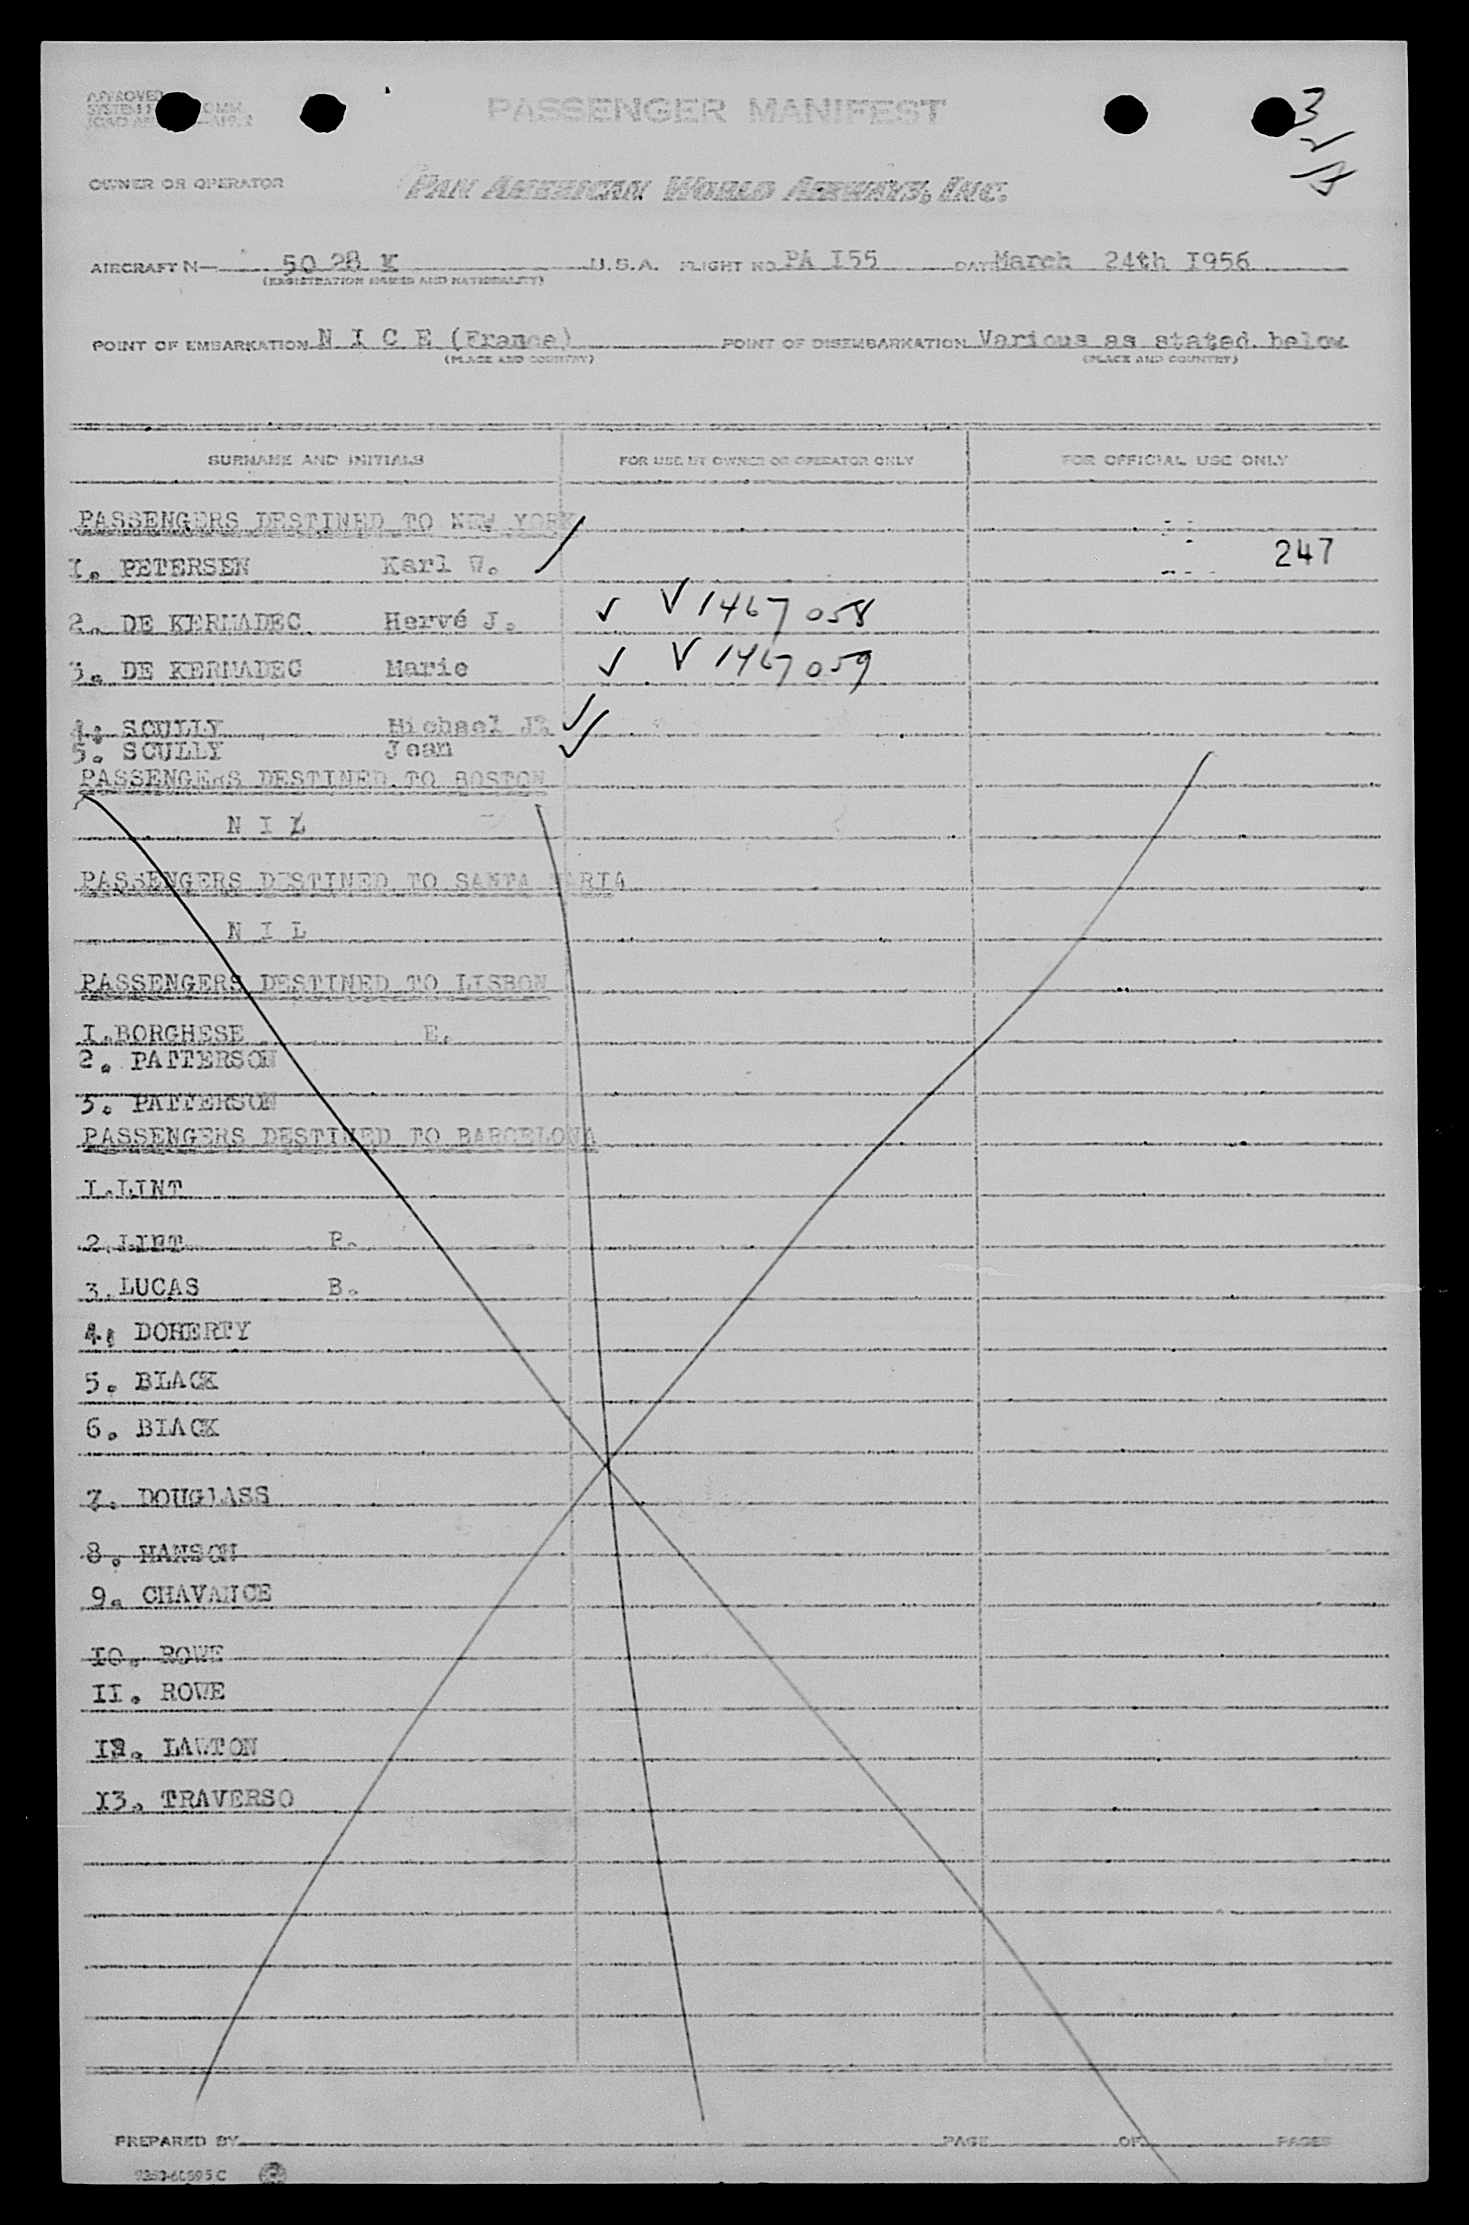 APPROVED
PASSENGER MANIFEST
3
OWNER OR OPERATOR PAN AMERICAN WORLD AIRWAYS, INC.
AIRCRAFT N— 5028 K U.S.A. FLIGHT NO. PA I55 DATE March 24th I956
(REGISTRATION MARKS AND NATIONALITY)
POINT OF EMBARKATION N I C E (France) POINT OF DISEMBARKATION Various as stated below
(PLACE AND COUNTRY) (PLACE AND COUNTRY)
SURNAME AND INITIALS FOR USE BY OWNER OR OPERATOR ONLY FOR OFFICIAL USE ONLY
PASSENGERS DESTINED TO NEW YORK
I. PETERSEN Karl W. 247
2. DE KERMADEC Hervé J. ✓ V 1467 058
3. DE KERMADEC Marie ✓ V 1467 059
4. SCULLY Michael ✓
5. SCULLY Jean ✓
PASSENGERS DESTINED TO BOSTON
N I L
PASSENGERS DESTINED TO SANTA MARIA
N I L
PASSENGERS DESTINED TO LISBON
I.BORGHESE E.
2. PATTERSON
3. PATTERSON
PASSENGERS DESTINED TO BARCELONA
I.LINT
2.LINT P.
3.LUCAS B.
4. DOHERTY
5. BLACK
6. BLACK
7. DOUGLASS
8. HANSON
9. CHAVANCE
IO. ROWE
II. ROWE
I2. LAWTON
I3. TRAVERSO
PREPARED BY PAGE OF PAGES